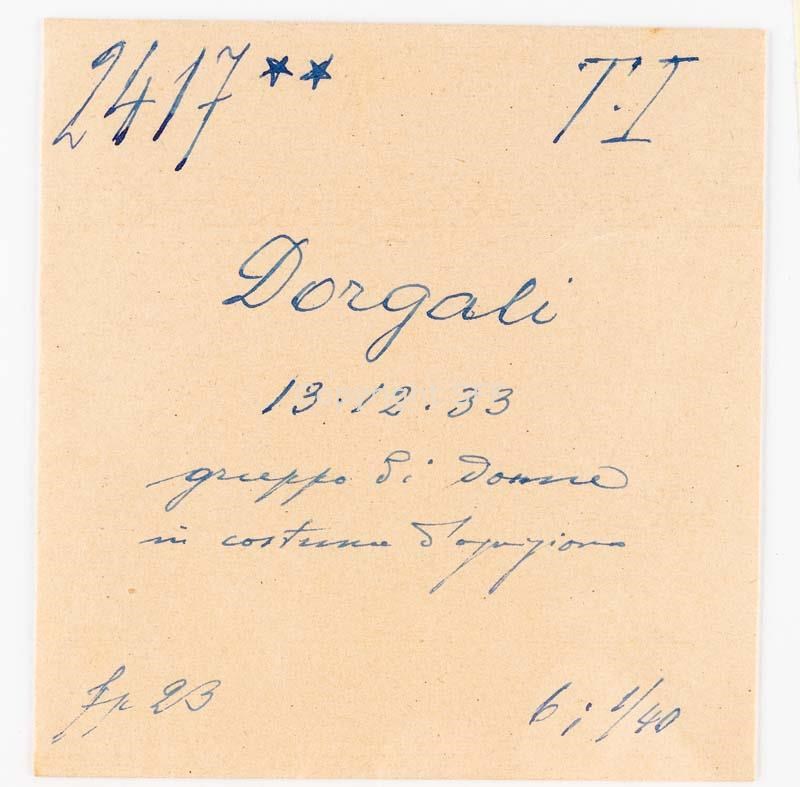 2417 ** T.I
Dorgali
13.12.33
gruppo di donne
in costume d'ogni giorno
fp 23
6; 1/40